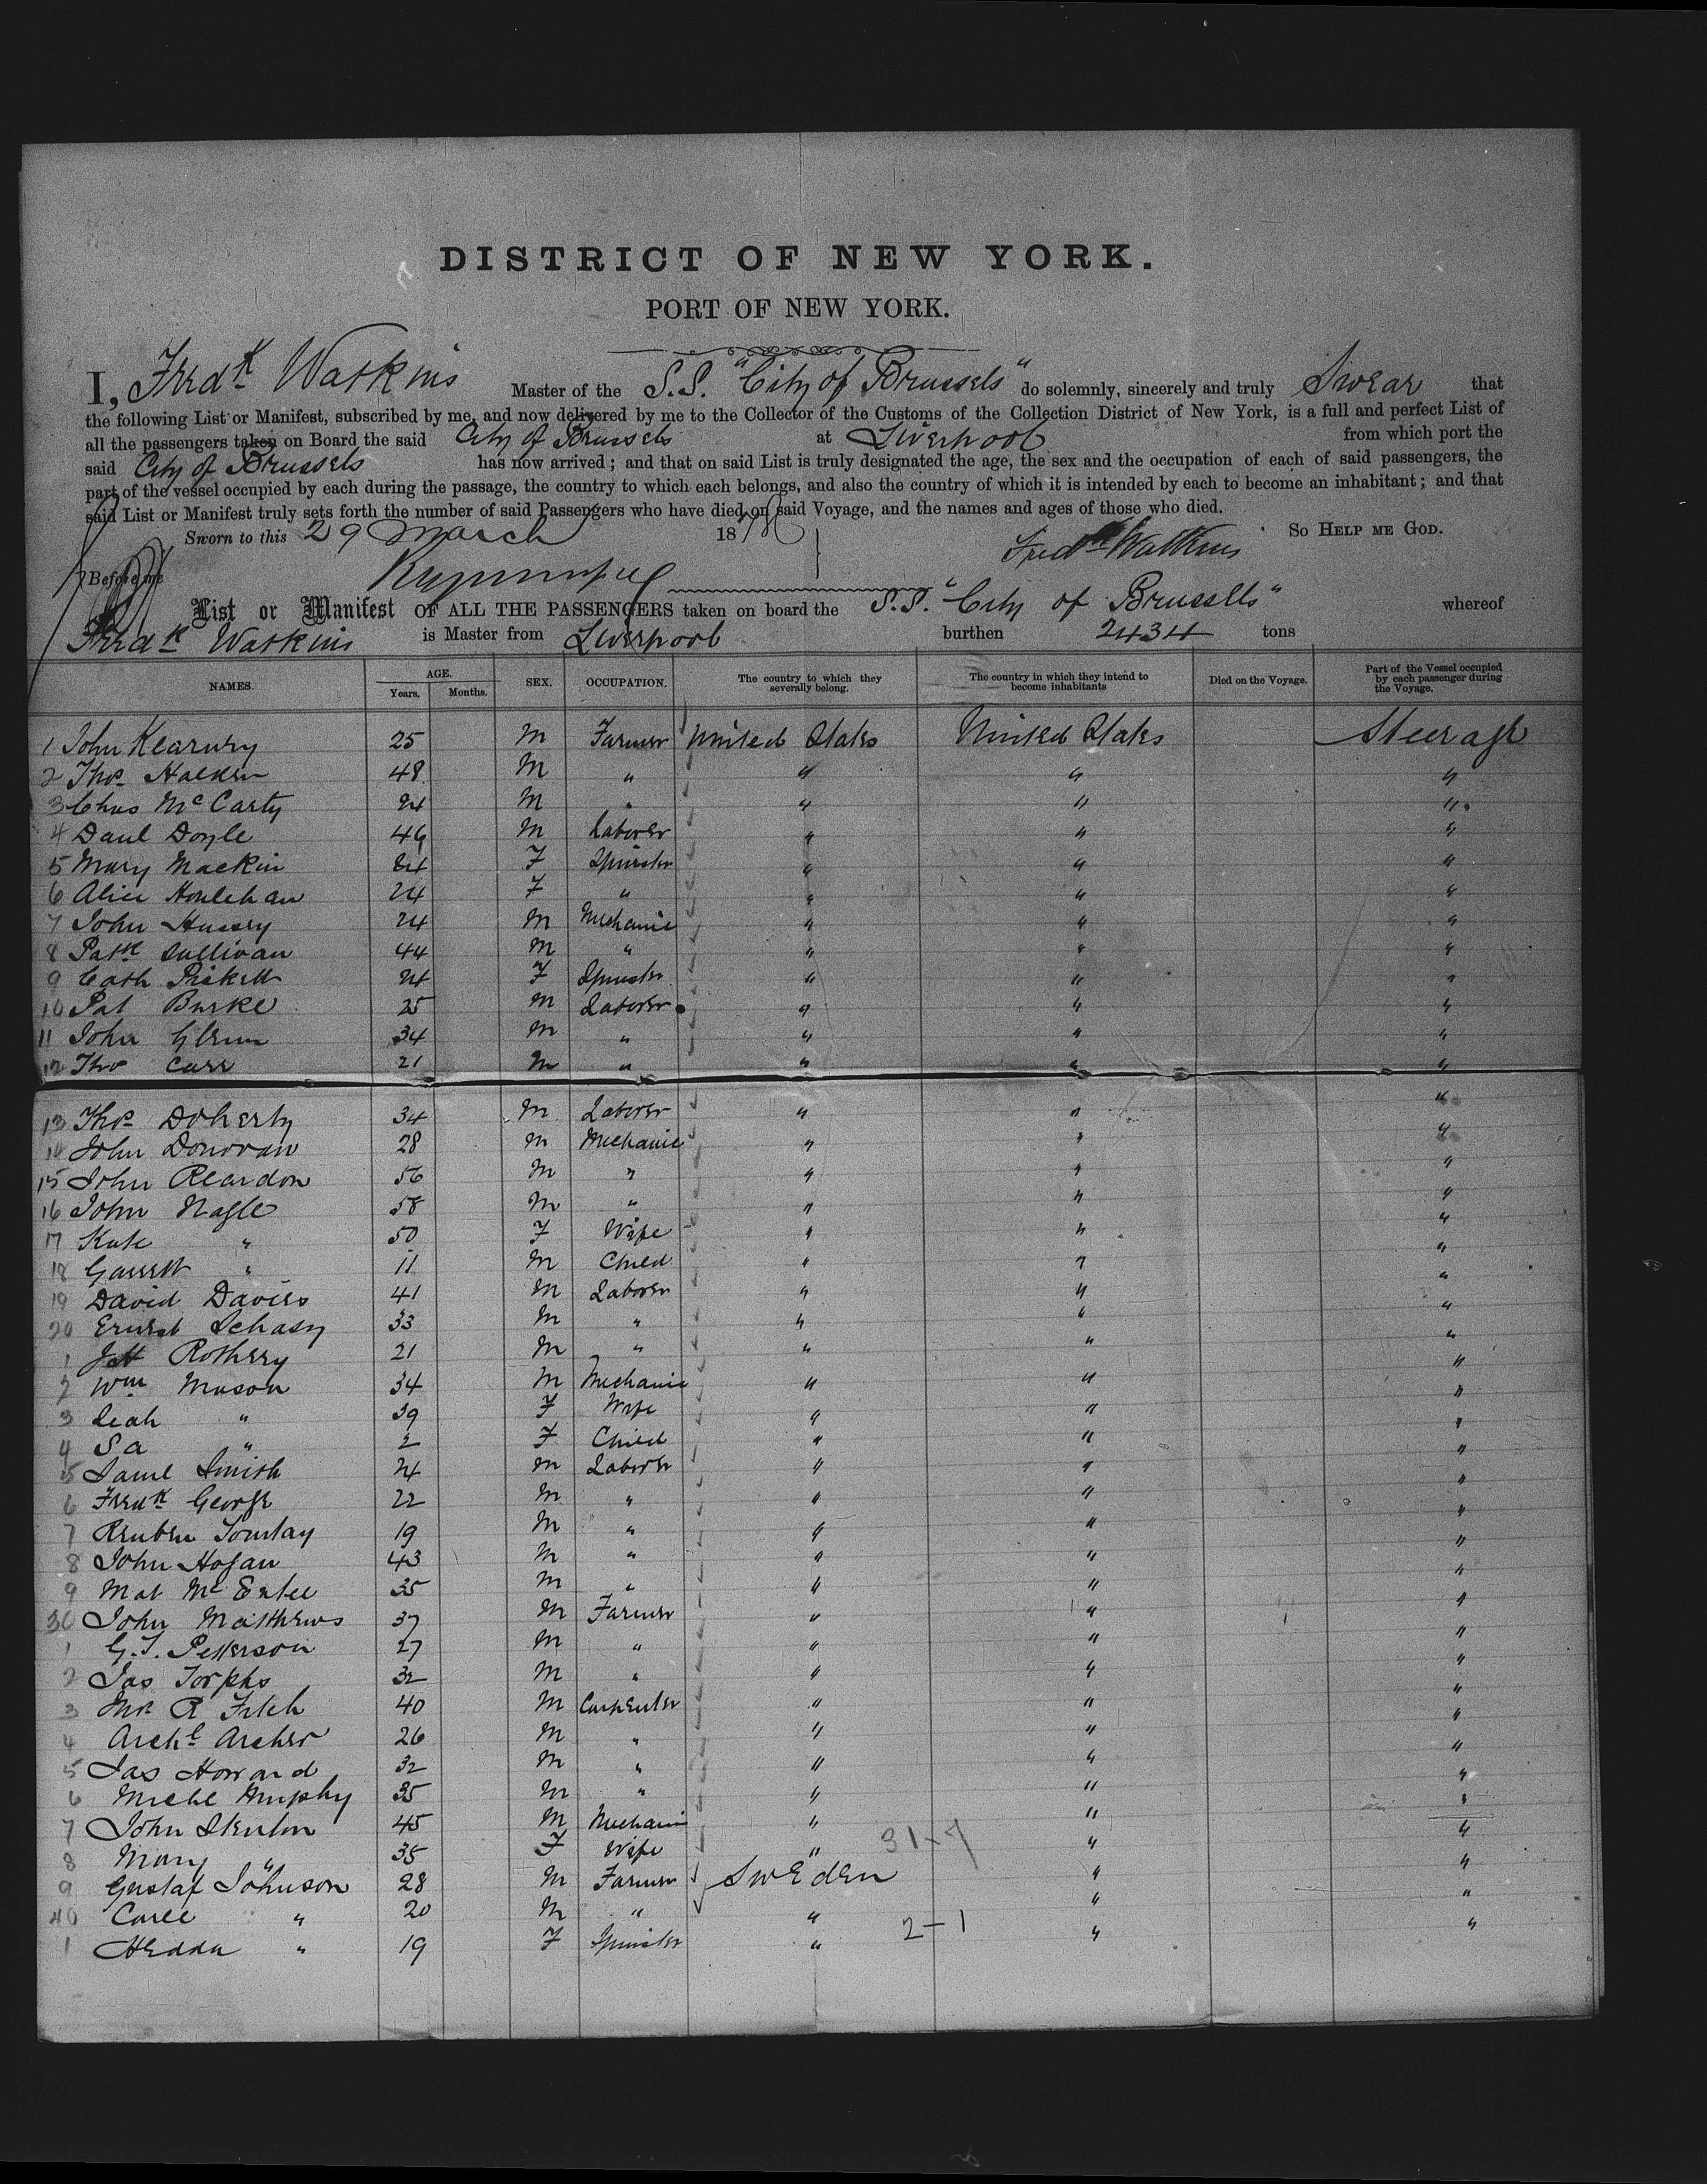 DISTRICT OF NEW YORK.
PORT OF NEW YORK.
I, Fredk Watkins Master of the S.S. "City of Brussels" do solemnly, sincerely and truly Swear that
the following List or Manifest, subscribed by me, and now delivered by me to the Collector of the Customs of the Collection District of New York, is a full and perfect List of
all the passengers taken on Board the said City of Brussels at Liverpool from which port the
said City of Brussels has now arrived; and that on said List is truly designated the age, the sex and the occupation of each of said passengers, the
part of the vessel occupied by each during the passage, the country to which each belongs, and also the country of which it is intended by each to become an inhabitant; and that
said List or Manifest truly sets forth the number of said Passengers who have died on said Voyage, and the names and ages of those who died.
Sworn to this 29 March 1878 Fredk Watkins So HELP ME GOD.
Before me
List or Manifest OF ALL THE PASSENGERS taken on board the S.S. "City of Brussells" whereof
Fredk Watkins is Master from Liverpool burthen 2434 tons
NAMES. AGE. Years. Months. SEX. OCCUPATION. The country to which they severally belong. The country in which they intend to become inhabitants Died on the Voyage. Part of the Vessel occupied by each passenger during the Voyage.
1 John Kearney 25 M Farmer United States United States Steerage
2 Thos 48 M " " " "
3 Chas McCarty 24 M " " " "
4 Danl Doyle 46 M Laborer " " "
5 Mary Mackin F Spinster " " "
6 Alice Houlehan 24 F " " " "
7 John Hussey 24 M Mechanic " " "
8 Patk Sullivan 44 M " " " "
9 Cath 24 F Spinster " " "
10 Pat Burke 25 M Laborer " " "
11 John Glenn 34 M " " " "
12 Tho Carr 21 M " " " "
13 Thos Doherty 34 M Laborer " " "
14 John Donovan 28 M Mechanic " " "
15 John Reardon 56 M " " " "
16 John Nagle 58 M " " " "
17 Kate " 50 F Wife " " "
18 Garrett " 11 M Child " " "
19 David Davies 41 M Laborer " " "
20 Ernest 33 M " " " "
1 J H Rothery 21 M " " " "
2 Wm Mason 34 M Mechanic " " "
3 Leah " 39 F Wife " " "
4 Sa " 2 F Child " " "
5 Saml Smith 24 M Laborer " " "
6 Fredk George 22 M " " " "
7 Reuben 19 M " " " "
8 John Hogan 43 M " " " "
9 Mat McEntee 35 M " " " "
30 John Matthews 37 M Farmer " " "
1 G.T. Petterson 27 M " " " "
2 Jas 32 M " " " "
3 R Fitch 40 M Carpenter " " "
4 Archd Archer 26 M " " " "
5 Jas Howard 32 M " " " "
6 Michl Murphy 35 M " " " "
7 John Stenton 45 M Mechanic " " "
8 Mary " 35 F Wife " 31-7 " "
9 Gustaf Johnson 28 M Farmer Sweden " "
40 Carle " 20 M " " " "
1 Hedda " 19 F Spinster " 2-1 " "